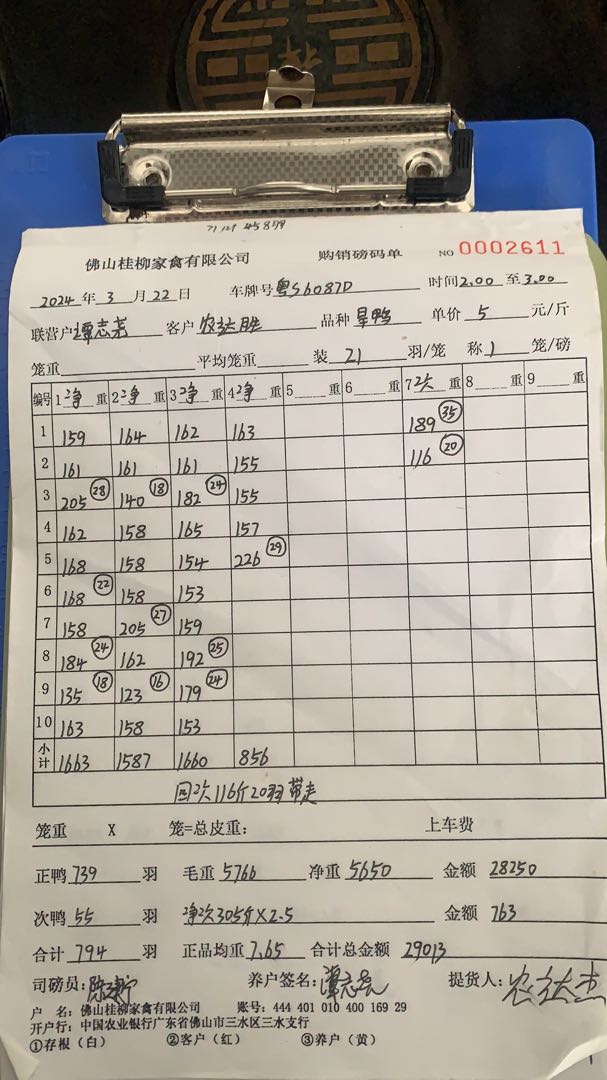 佛山桂柳家禽有限公司 购销磅码单 NO 0002611
2024年3月22日 车牌号粤S6087D 时间2.00至3.00
联营户谭志尧 客户农达胜 品种旱鸭 单价5元/斤
笼重 平均笼重 装21羽/笼 称1笼/磅
编号 1净重 2净重 3净重 4净重 5重 6重 7次重 8重 9重
1 159 164 162 163 189 (35)
2 161 161 161 155 116 (20)
3 205 (28) 140 (18) 182 (24) 155
4 162 158 165 157
5 168 158 154 226 (29)
6 168 (22) 158 153
7 158 205 (27) 159
8 184 (24) 162 192 (25)
9 135 (18) 123 (16) 179 (24)
10 163 158 153
小计 1663 1587 1660 856
回次116斤20羽带走
笼重 X 笼=总皮重: 上车费
正鸭739羽 毛重5766 净重5650 金额28250
次鸭55羽 净次305斤X2.5 金额763
合计794羽 正品均重7.65 合计总金额29013
司磅员: 养户签名: 提货人:
户 名: 佛山桂柳家禽有限公司 账号: 444 401 010 400 169 29
开户行: 中国农业银行广东省佛山市三水区三水支行
①存根(白) ②客户(红) ③养户(黄)